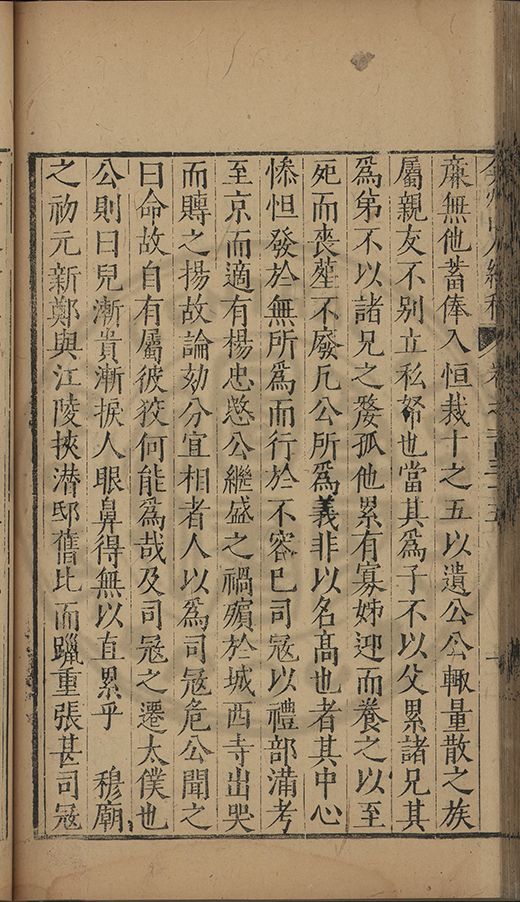 弇州山人續稿 卷之一百三十五
亷無他蓄俸入恒裁十之五以遺公公輙量散之族
屬親友不别立私帑也當其爲子不以父累諸兄其
爲弟不以諸兄之嫠孤他累有寡姊迎而養之以至
死而喪塟不廢凡公所爲義非以名高也者其中心
惏怛發於無所爲而行於不容已司冦以禮部滿考
至京而適有楊忠愍公繼盛之禍殯於城西寺出哭
而賻之揚故論劾分宜相者人以爲司冦危公聞之
曰命故自有屬彼狡何能爲哉及司冦之遷太僕也
公則曰兒漸貴漸捩人眼鼻得無以直累乎 穆廟
之初元新鄭與江陵挾潜邸舊比而躐重張甚司冦